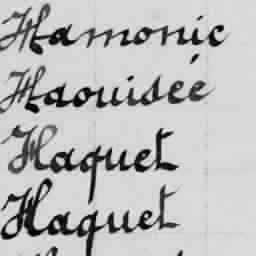 Hamonic
Haouisée
Haquet
Haquet